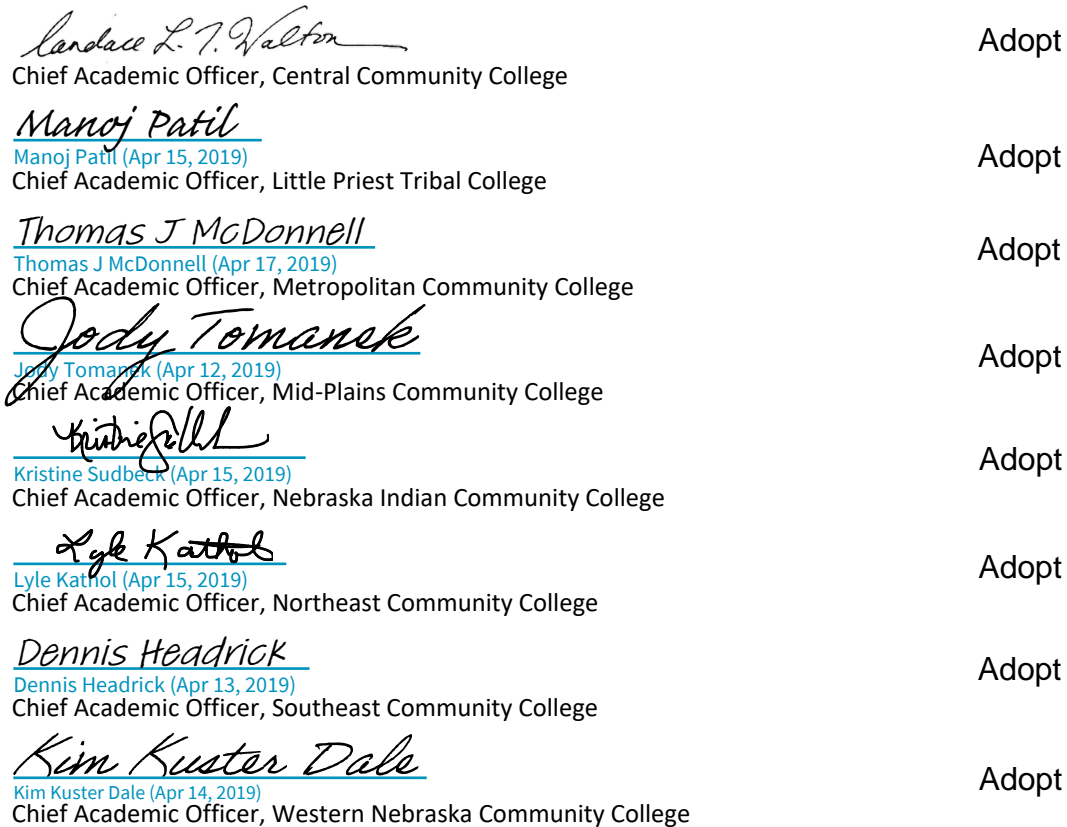 Candace L. T. Walton Adopt
Chief Academic Officer, Central Community College
Manoj Patil
Manoj Patil (Apr 15, 2019) Adopt
Chief Academic Officer, Little Priest Tribal College
Thomas J McDonnell Adopt
Thomas J McDonnell (Apr 17, 2019)
Chief Academic Officer, Metropolitan Community College
Jody Tomanek
Jody Tomanek (Apr 12, 2019) Adopt
Chief Academic Officer, Mid-Plains Community College
Kristine Sudbeck (Apr 15, 2019) Adopt
Chief Academic Officer, Nebraska Indian Community College
Lyle Kathol
Lyle Kathol (Apr 15, 2019) Adopt
Chief Academic Officer, Northeast Community College
Dennis Headrick
Dennis Headrick (Apr 13, 2019) Adopt
Chief Academic Officer, Southeast Community College
Kim Kuster Dale
Kim Kuster Dale (Apr 14, 2019) Adopt
Chief Academic Officer, Western Nebraska Community College